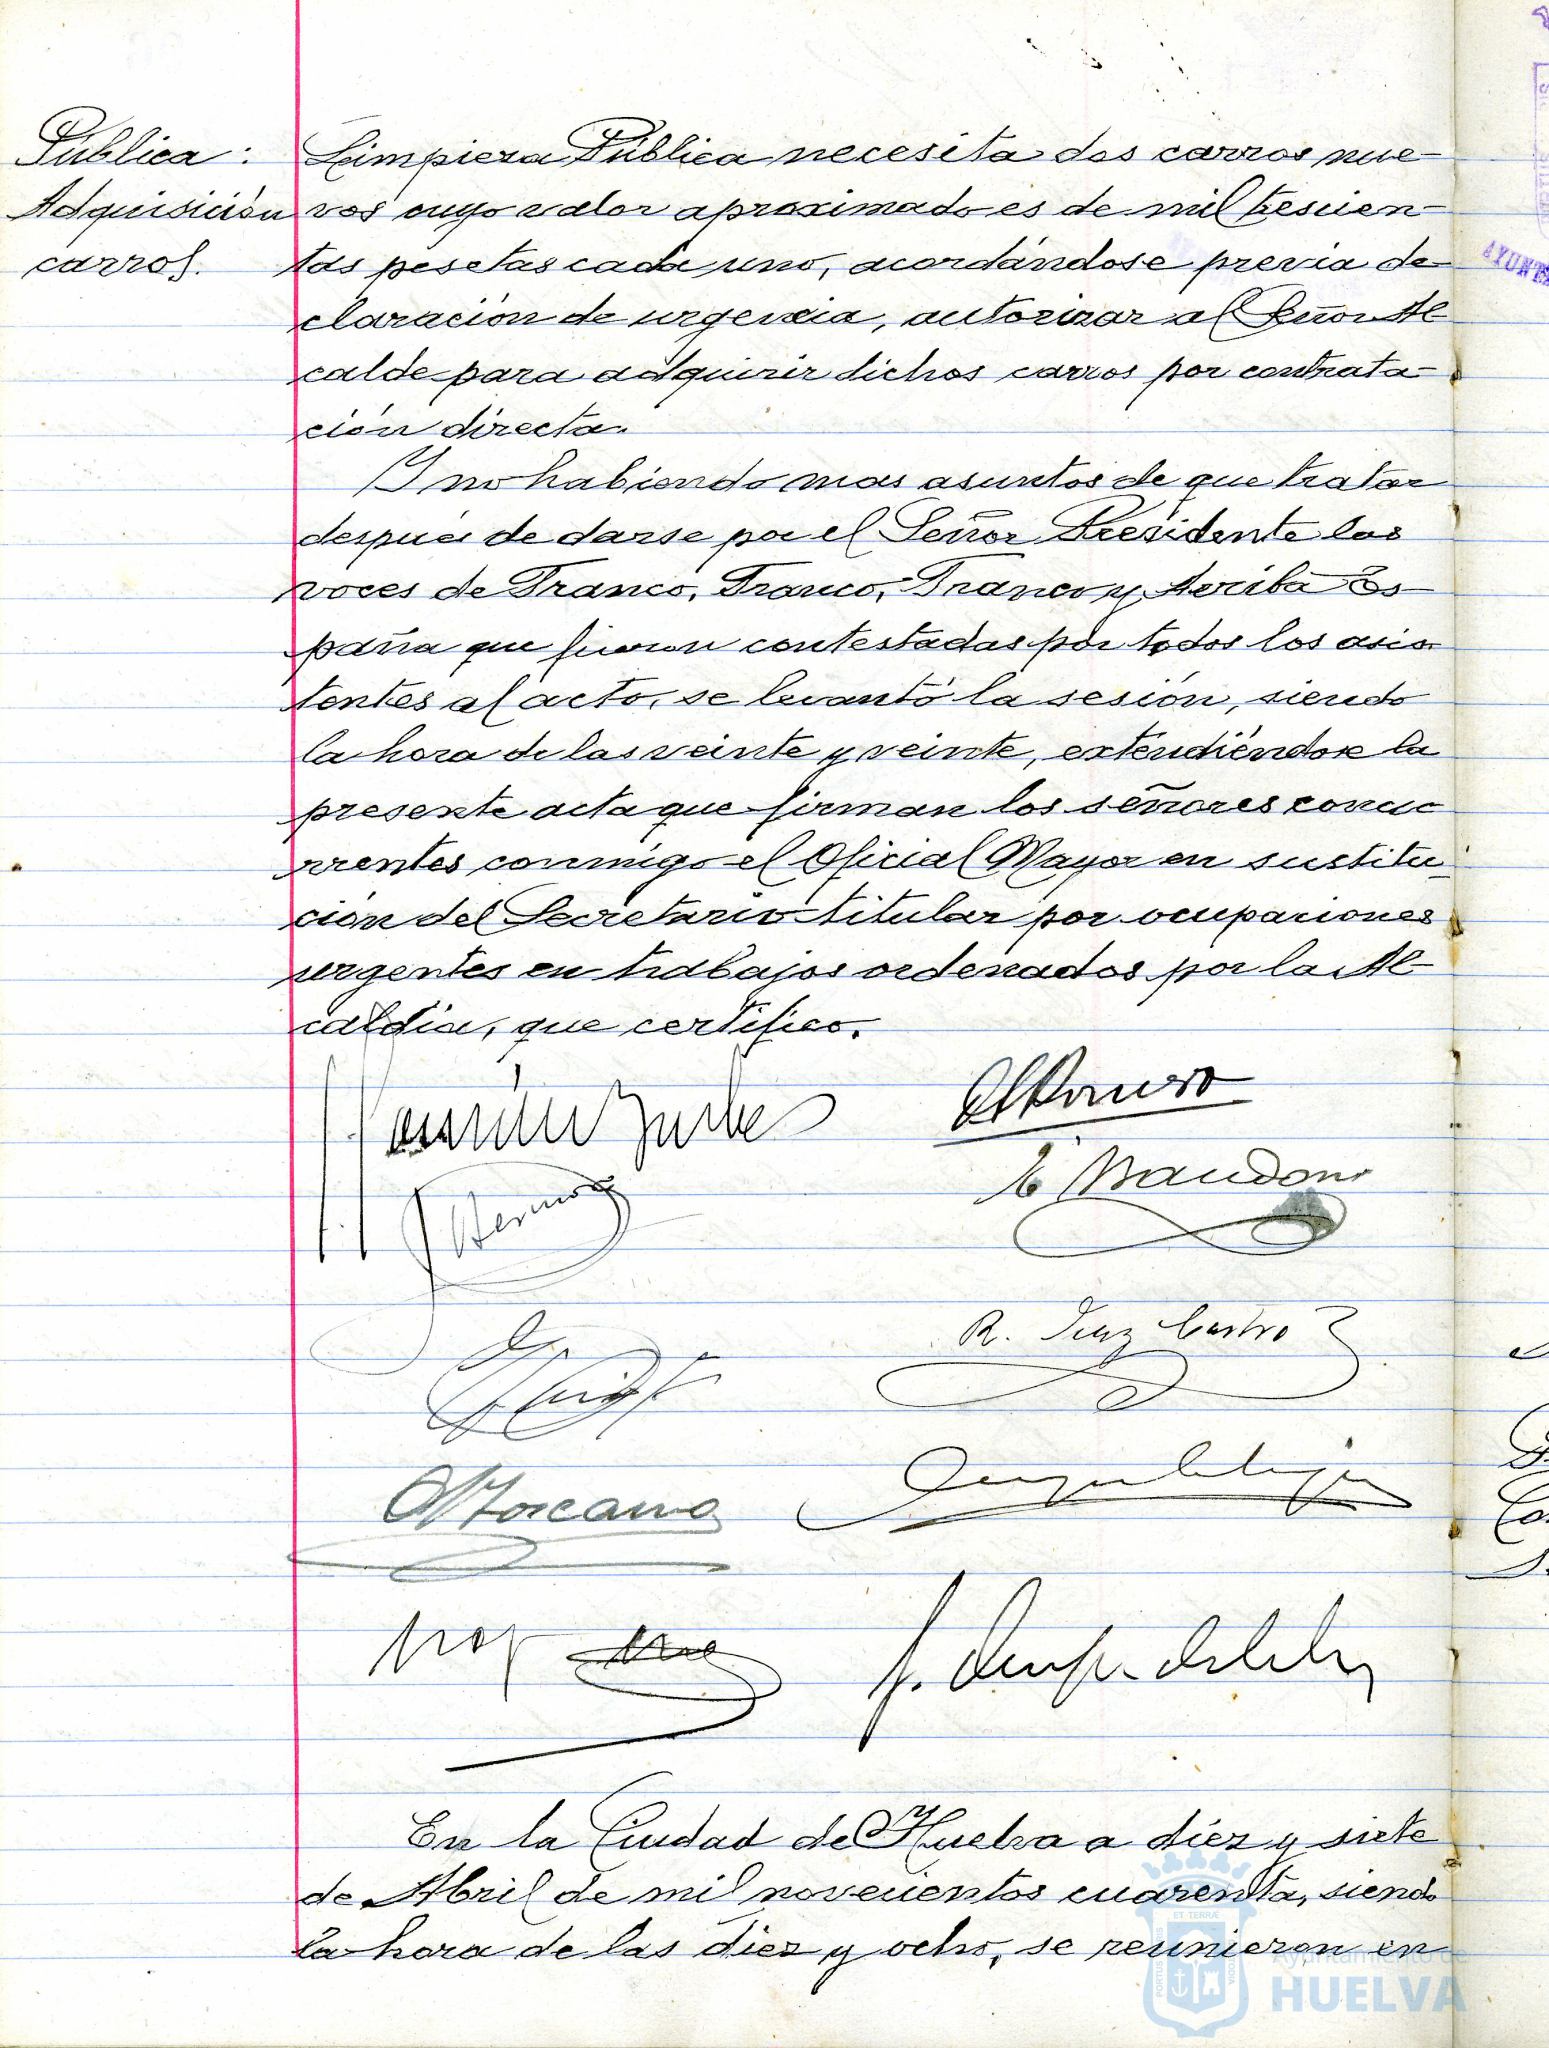 Pública:
Adquisición
carros.
Limpieza Pública necesita dos carros nue-
vos cuyo valor aproximado es de mil trescien-
tas pesetas cada uno, acordándose previa de-
claración de urgencia, autorizar al Señor Al-
calde para adquirir dichos carros por contrata-
ción directa.
Y no habiendo mas asuntos de que tratar
después de darse por el Señor Presidente las
voces de Franco, Franco, Franco y Arriba Es-
paña que fueron contestadas por todos los asis-
tentes al acto, se levantó la sesión, siendo
la hora de las veinte y veinte, extendiéndose la
presente acta que firman los señores concu-
rrentes conmigo el Oficial Mayor en sustitu-
ción del Secretario titular por ocupaciones
urgentes en trabajos ordenados por la Al-
caldia, que certifico.
R. Diaz Castro
En la Ciudad de Huelva a diez y siete
de Abril de mil novecientos cuarenta, siendo
la hora de las diez y ocho, se reunieron en
Ayuntamiento de
HUELVA